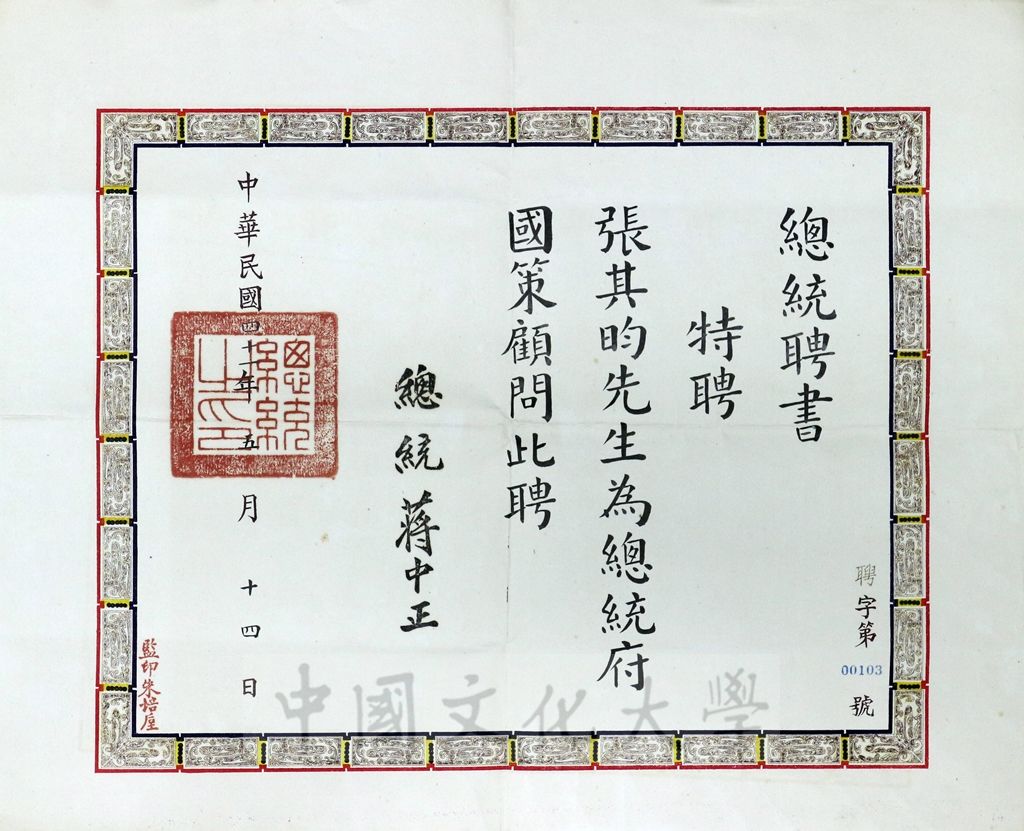 總統聘書
特聘
張其昀先生為總統府
國策顧問此聘
總統蔣中正
中華民國四十一年五月十四日
總統之印
聘字第00103號
監印朱
中國文化大學